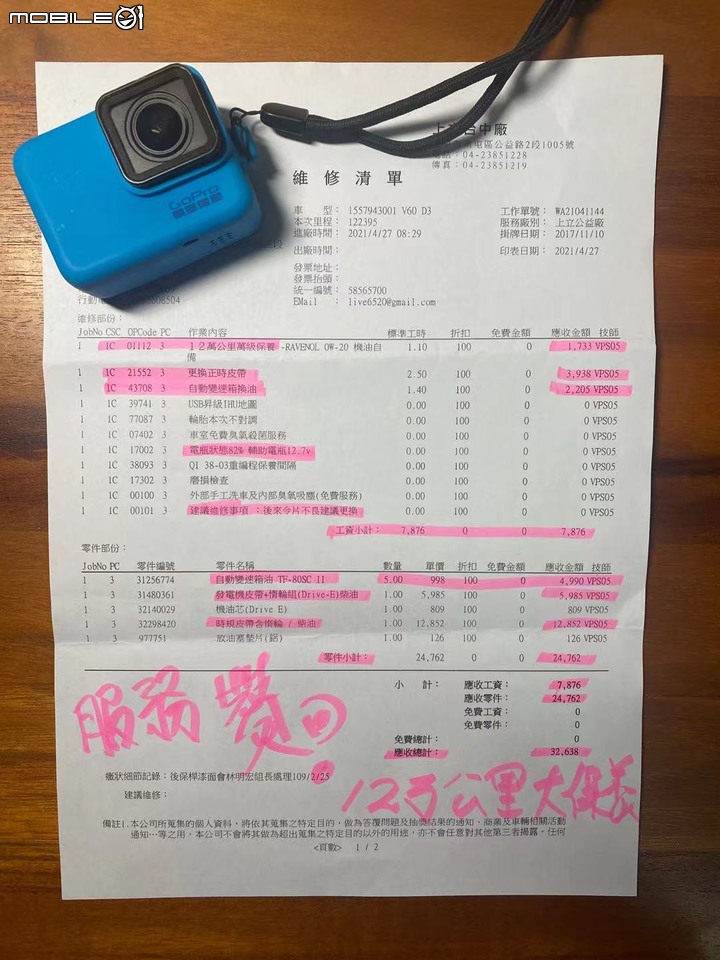 MOBILE01
GoPro
上立台中廠
屯區公益路2段1005號
電話：04-23851228
傳真：04-23851219
維修清單
車 型： 1557943001 V60 D3
工作單號： WA21041144
本次里程： 122395
服務廠別： 上立公益廠
進廠時間： 2021/4/27 08:29
掛牌日期： 2017/11/10
段
出廠時間：
印表日期： 2021/4/27
發票地址：
發票抬頭：
統一編號： 58565700
行動電 508504
EMail ： live6520@gmail.com
維修部份：
JobNo CSC OPCode PC 作業內容 標準工時 折扣 免費金額 應收金額 技師
1 1C 01112 3 １２萬公里萬級保養 -RAVENOL OW-20 機油自備 1.10 100 0 1,733 VPS05
1 1C 21552 3 更換正時皮帶 2.50 100 0 3,938 VPS05
1 1C 43708 3 自動變速箱換油 1.40 100 0 2,205 VPS05
1 1C 39741 3 USB昇級IHU地圖 0.00 100 0 0 VPS05
1 1C 77087 3 輪胎本次不對調 0.00 100 0 0 VPS05
1 1C 07402 3 車室免費臭氧殺菌服務 0.00 100 0 0 VPS05
1 1C 17002 3 電瓶狀態82% 輔助電瓶12.7v 0.00 100 0 0 VPS05
1 1C 38093 3 Q1 38-03重編程保養間隔 0.00 100 0 0 VPS05
1 1C 17302 3 磨損檢查 0.00 100 0 0 VPS05
1 1C 00100 3 外部手工洗車及內部臭氧吸塵(免費服務) 0.00 100 0 0 VPS05
1 1C 00101 3 建議維修事項 ：後來令片不良建議更換 0.00 100 0 0 VPS05
工資小計： 7,876 0 0 7,876
零件部份：
JobNo PC 零件編號 零件名稱 數量 單價 折扣 免費金額 應收金額 技師
1 3 31256774 自動變速箱油 TF-80SC II 5.00 998 100 0 4,990 VPS05
1 3 31480361 發電機皮帶+惰輪組(Drive-E)柴油 1.00 5,985 100 0 5,985 VPS05
1 3 32140029 機油芯(Drive E) 1.00 809 100 0 809 VPS05
1 3 32298420 時規皮帶含惰輪 / 柴油 1.00 12,852 100 0 12,852 VPS05
1 3 977751 放油塞墊片(鋁) 1.00 126 100 0 126 VPS05
零件小計： 24,762 0 0 24,762
小 計： 應收工資： 7,876
應收零件： 24,762
免費工資： 0
免費零件： 0
免費總計： 0
應收總計： 32,638
服務費a
12万公里大保養
癥狀細節記錄：後保桿漆面會林明宏組長處理109/2/25
建議維修：
備註1.本公司所蒐集的個人資料，將依其蒐集之特定目的，做為答覆問題及抽獎結果的通知、商業及車輛相關活動
通知…等之用。本公司不會將其做為超出蒐集之特定目的以外的用途，亦不會任意對其他第三者揭露。任何
<頁數> 1 / 2